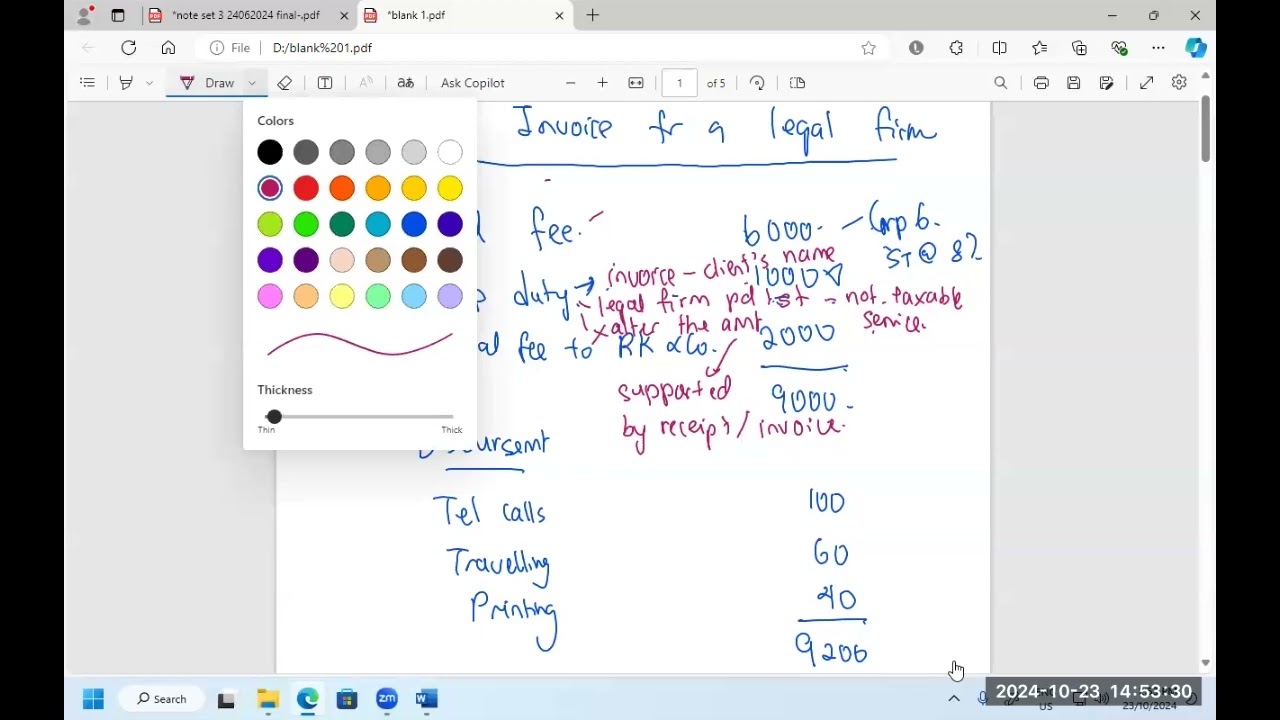 *note set 3 24062024 final-.pdf
*blank 1.pdf
File D:/blank%201.pdf
Draw
Ask Copilot
1 of 5
Colors
Thickness
Thin Thick
Invoice fr a legal firm
fee. 6000. Corp 6.
ST @ 8%
duty invoice - client's name 1000
legal firm pd 1st - not taxable
x alter the amt service.
al fee to RK & Co. 2000
supported 9000.
by receipt / invoice.
ursemt
Tel calls 100
Travelling 60
Printing 40
9200
Search
zm
US
2024-10-23 14:53:30
23/10/2024